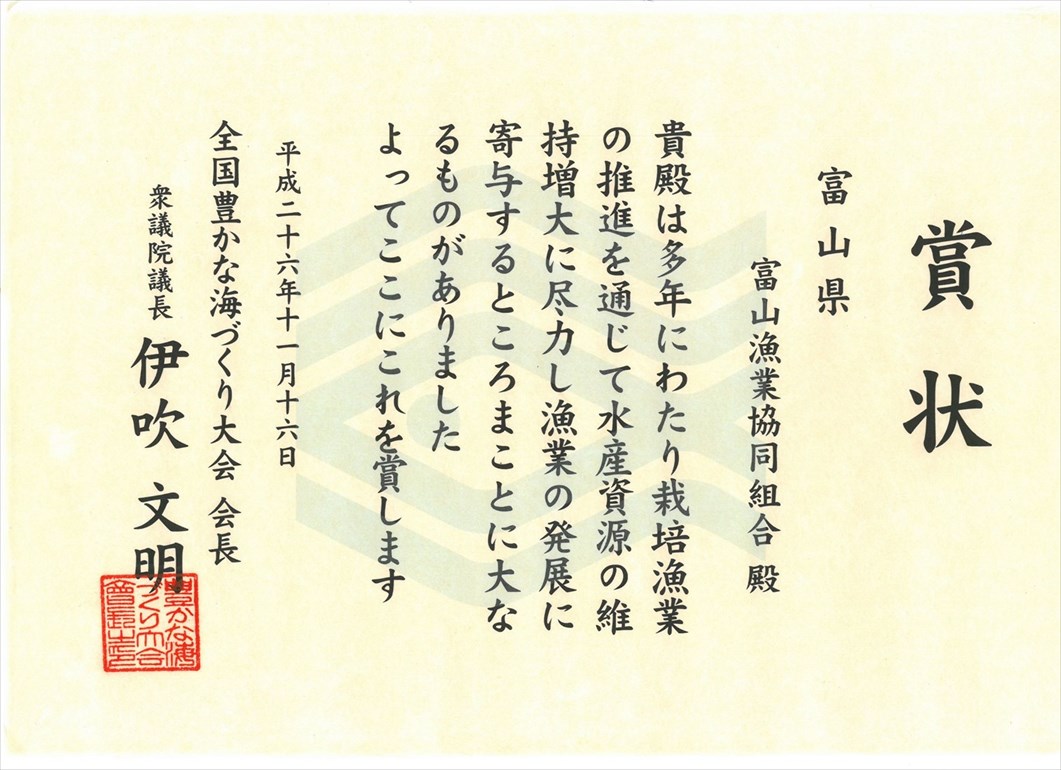 賞状
富山県
富山漁業協同組合 殿
貴殿は多年にわたり栽培漁業
の推進を通じて水産資源の維
持増大に尽力し漁業の発展に
寄与するところまことに大な
るものがありました
よってここにこれを賞します
平成二十六年十一月十六日
全国豊かな海づくり大会 会長
衆議院議長 伊吹 文明
豊かな海
づくり大会
會長之印